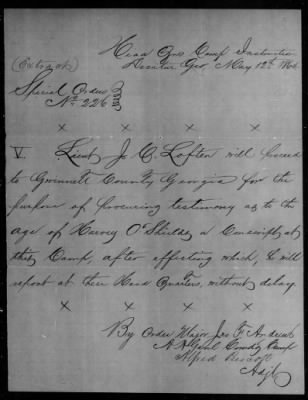 Head Qrs Camp Instruction
Decatur Geo May 12th
(Extract)
Special Orders
No 226
x x x x
V. Lieut J. C. Loften will proceed
to Gwinnett County Georgia for the
purpose of procuring testimony as to the
age of Harvey O'Shields a Conscript at
this Camp, after effecting which, he will
report at these Head Quarters, without delay
x x x x
By Order Major Jos F. Andrews
Comdg Camp
Alfred
Adjt